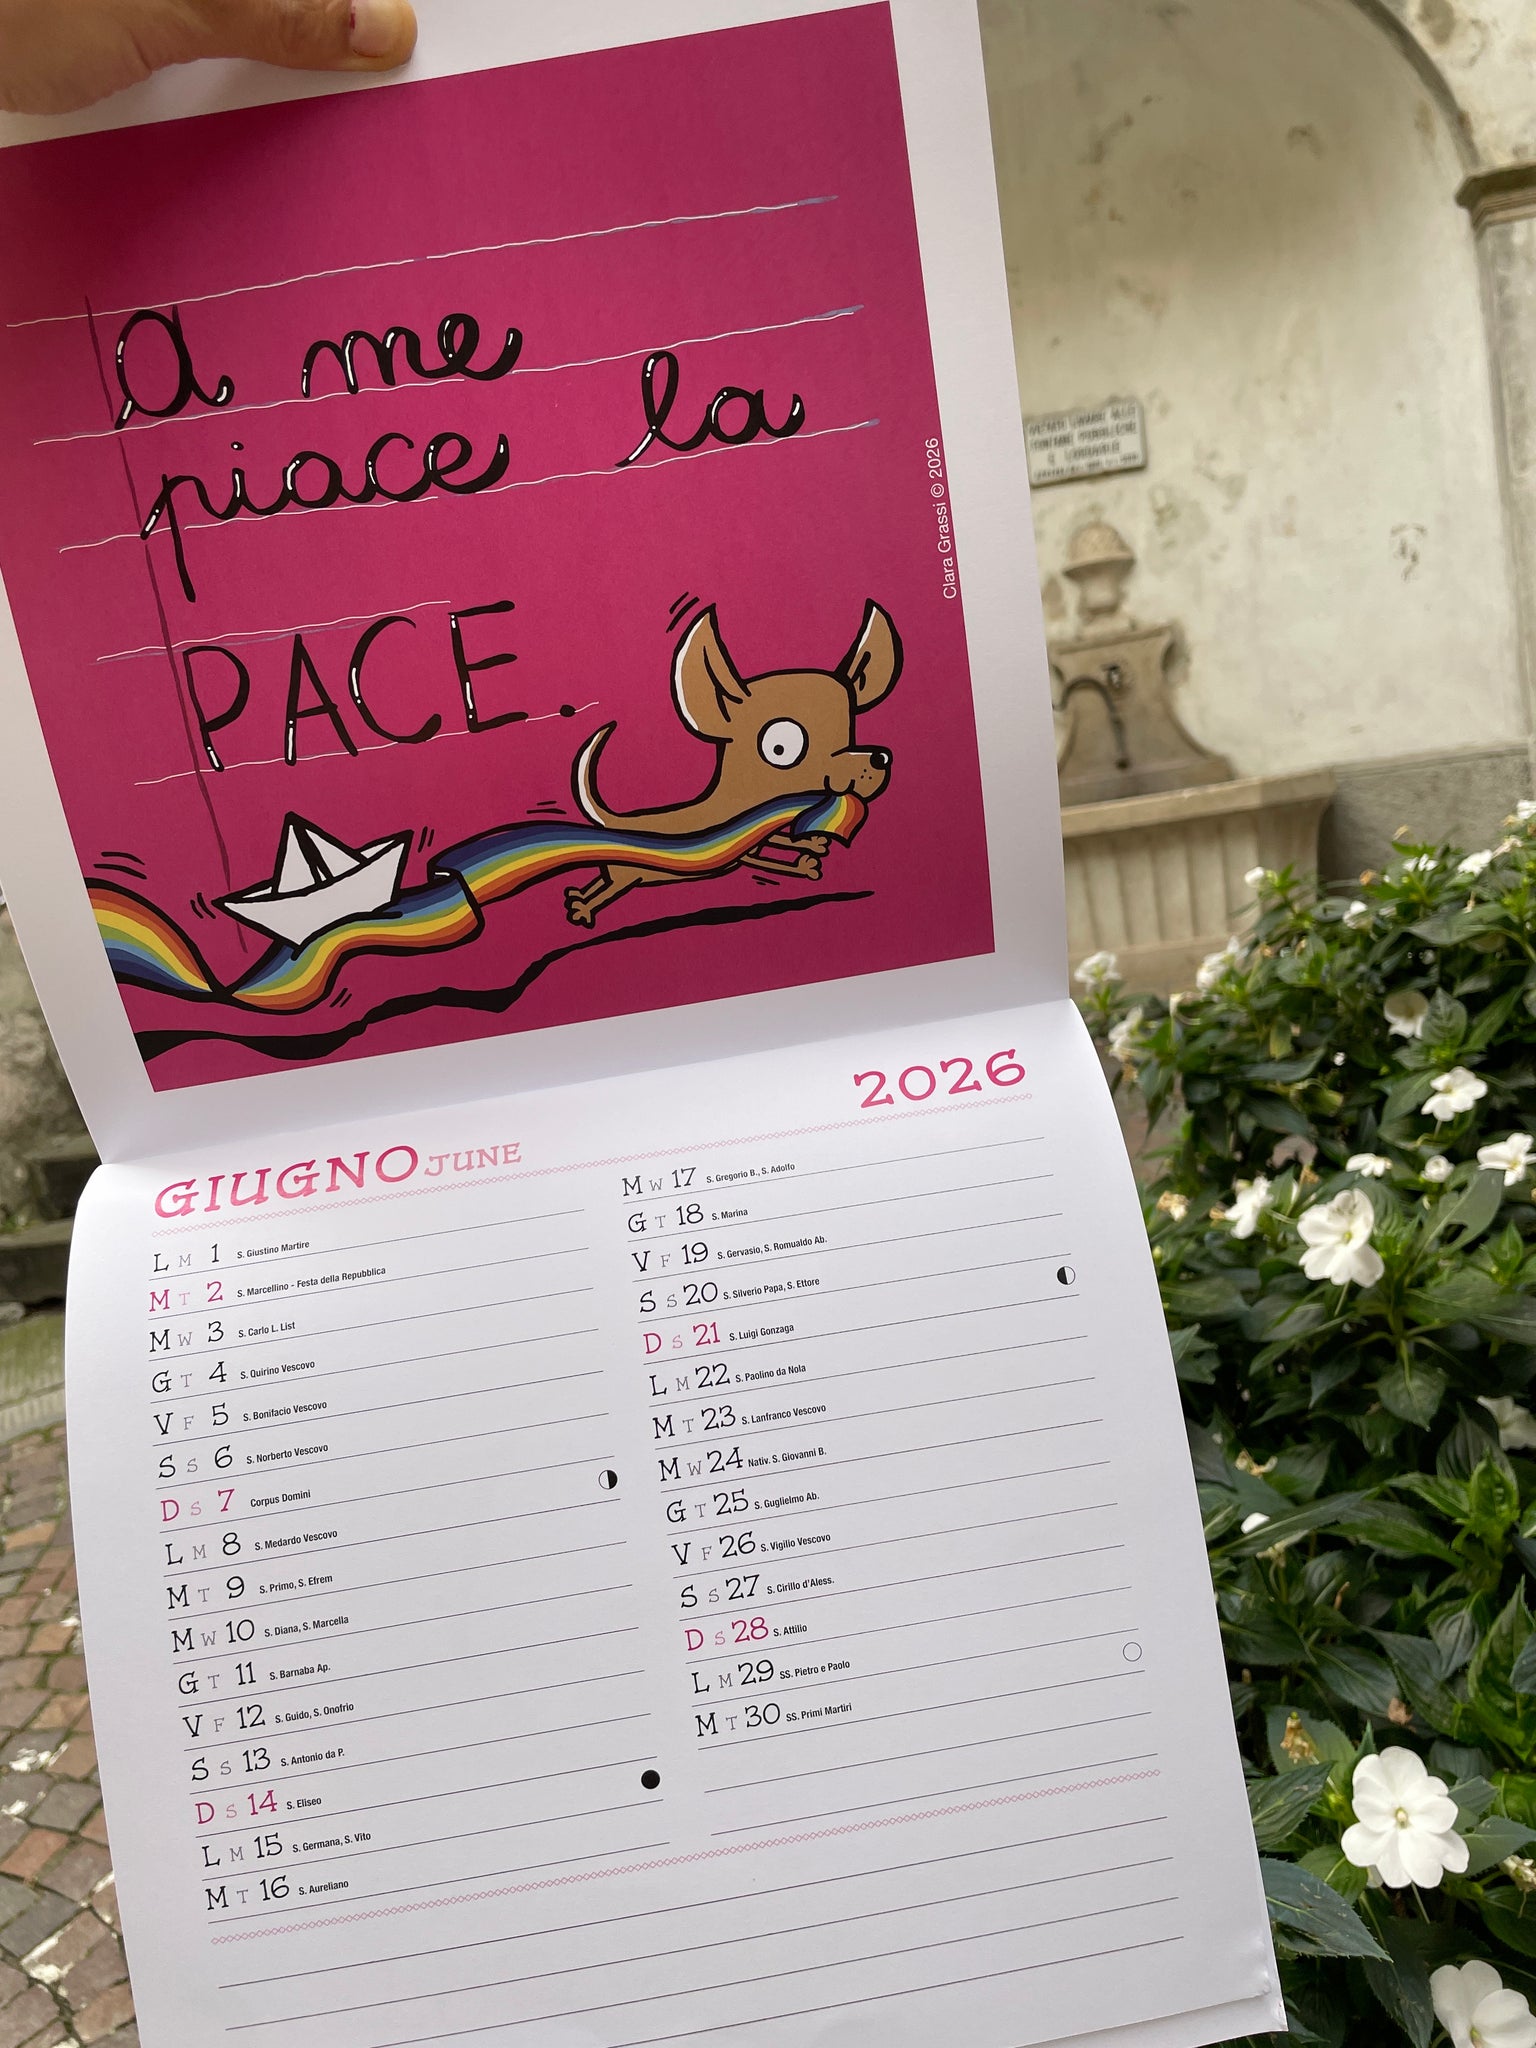 a me
piace la
PACE.
Clara Grassi © 2026
VIETATO LAVARSI ALLE
FONTANE PUBBLICHE
E LORDARLE
GIUGNO JUNE
2026
L M 1 S. Giustino Martire
M T 2 S. Marcellino - Festa della Repubblica
M W 3 S. Carlo L. List
G T 4 S. Quirino Vescovo
V F 5 S. Bonifacio Vescovo
S S 6 S. Norberto Vescovo
D S 7 Corpus Domini
L M 8 S. Medardo Vescovo
M T 9 S. Primo, S. Efrem
M W 10 S. Diana, S. Marcella
G T 11 S. Barnaba Ap.
V F 12 S. Guido, S. Onofrio
S S 13 S. Antonio da P.
D S 14 S. Eliseo
L M 15 S. Germana, S. Vito
M T 16 S. Aureliano
M W 17 S. Gregorio B., S. Adolfo
G T 18 S. Marina
V F 19 S. Gervasio, S. Romualdo Ab.
S S 20 S. Silverio Papa, S. Ettore
D S 21 S. Luigi Gonzaga
L M 22 S. Paolino da Nola
M T 23 S. Lanfranco Vescovo
M W 24 Nativ. S. Giovanni B.
G T 25 S. Guglielmo Ab.
V F 26 S. Vigilio Vescovo
S S 27 S. Cirillo d'Aless.
D S 28 S. Attilio
L M 29 SS. Pietro e Paolo
M T 30 SS. Primi Martiri